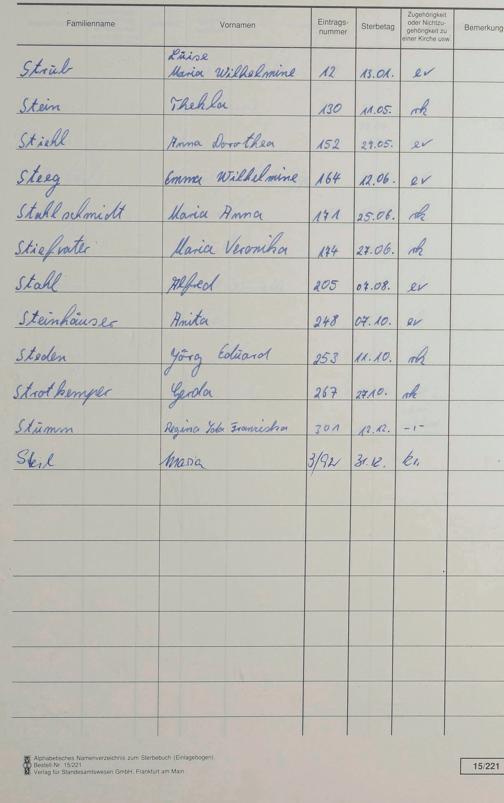 Familienname Vornamen Eintrags-nummer Sterbetag Zugehörigkeit oder Nichtzu-gehörigkeit zu einer Kirche usw. Bemerkung
Luise
Strüb Maria Wilhelmine 12 13.01. ev
Stein Thekla 130 11.05. rk
Stiehl Anna Dorothea 152 29.05. ev
Steeg Emma Wilhelmine 164 12.06. ev
Stahlschmidt Maria Anna 171 25.06. rk
Stiefvater Maria Veronika 174 27.06. rk
Stahl Alfred 205 07.08. ev
Steinhäuser Anita 248 07.10. ev
Steden Jörg Eduard 253 11.10. rk
Strotkemper Gerda 267 27.10. rk
Stumm Regina Franziska 301 12.12. -"-
Maria 3/92 31.12.
Alphabetisches Namenverzeichnis zum Sterbebuch (Einlagebogen)
Bestell-Nr. 15/221
Verlag für Standesamtswesen GmbH, Frankfurt am Main
15/221